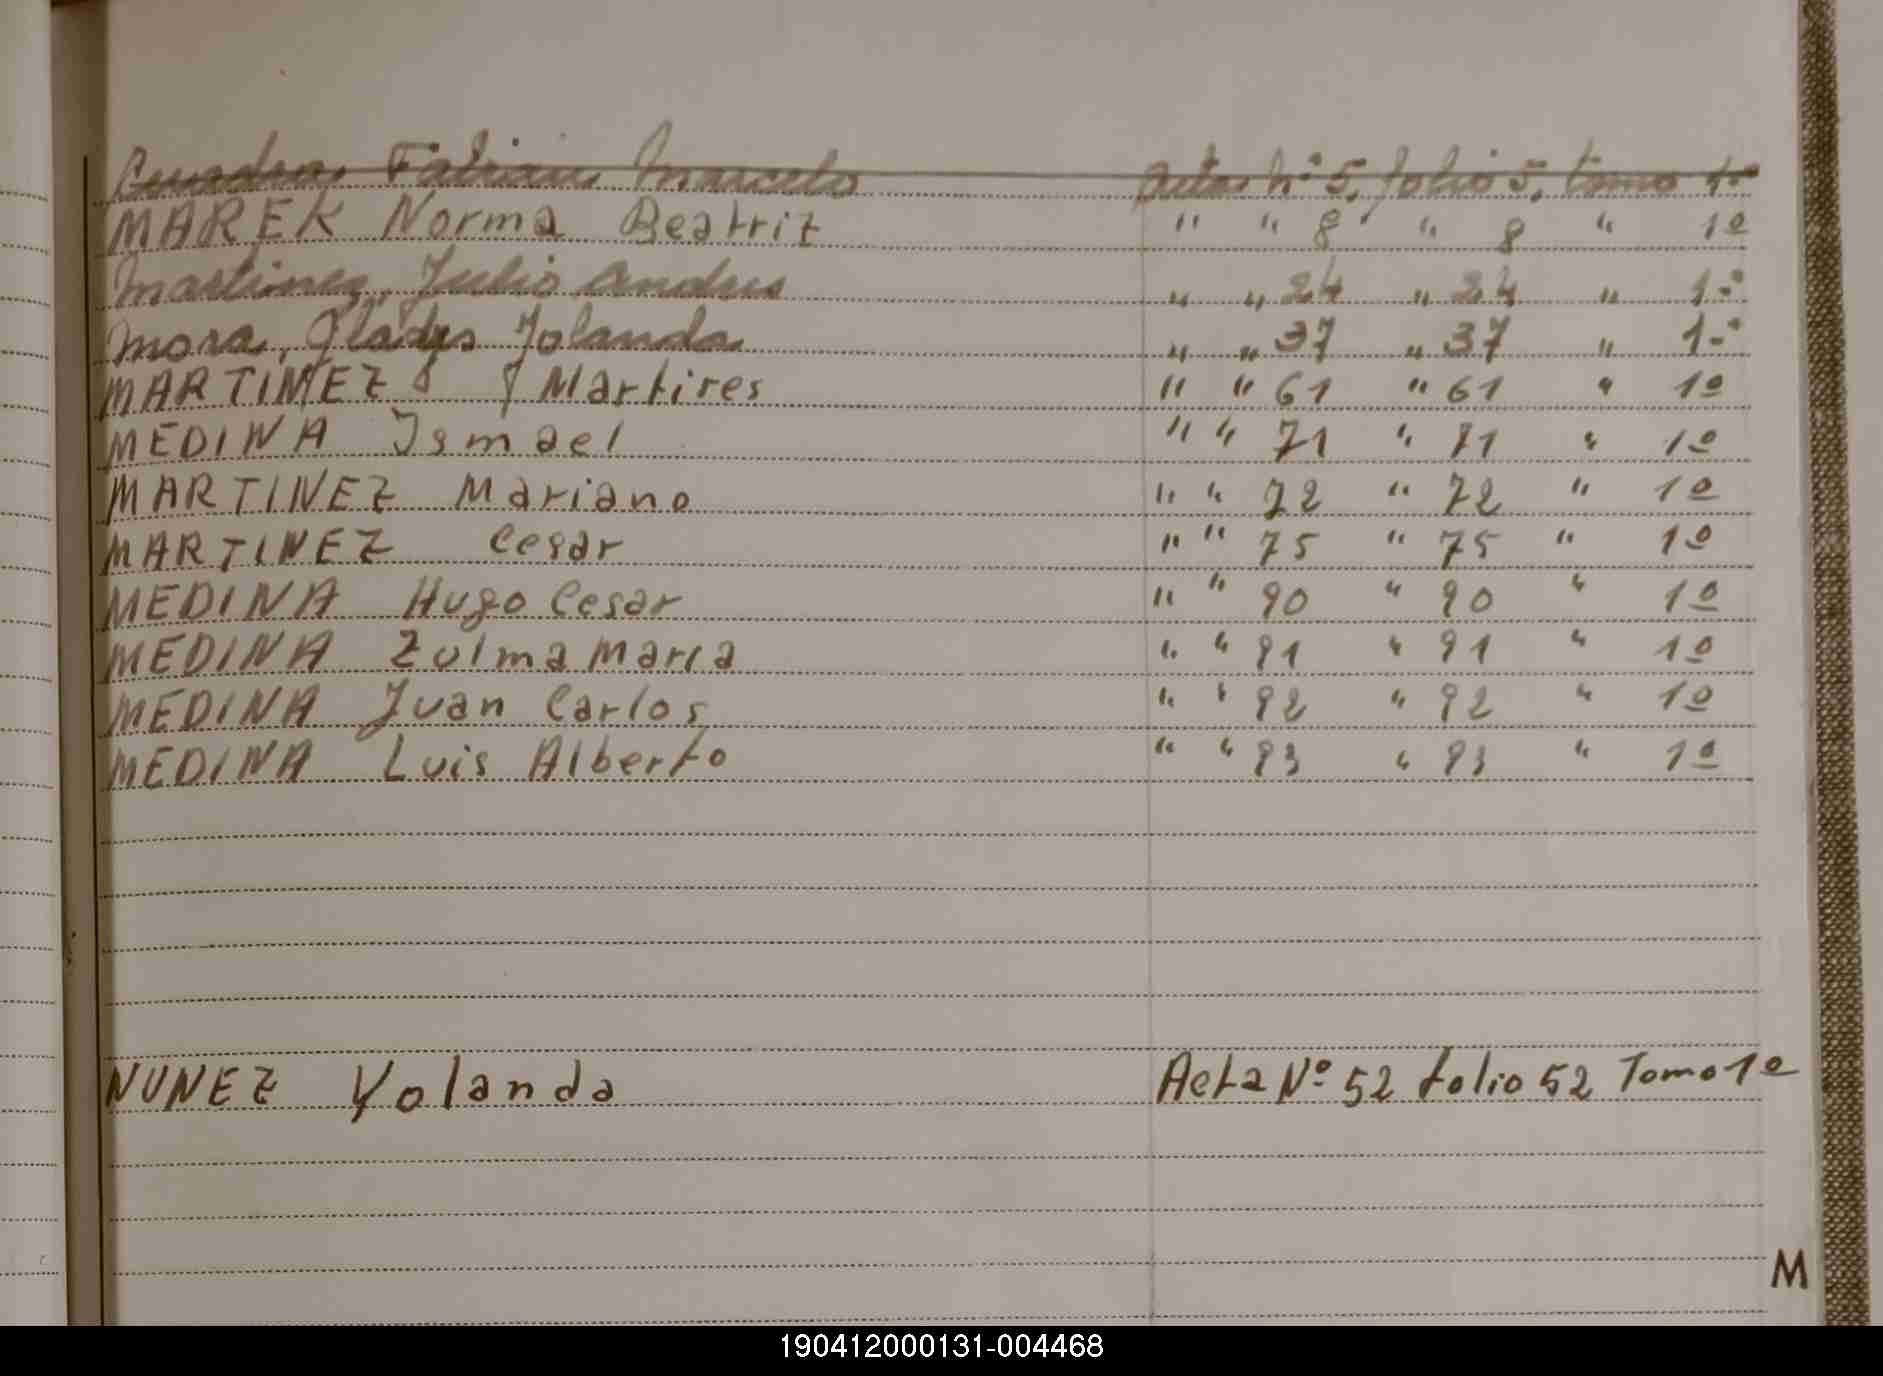 Cuadra, Fabian Marcelo Acta Nº 5, folio 5, tomo 1º
MAREK Norma Beatriz " " 8 " 8 " 1º
Martinez, Julio Andres " " 24 " 24 " 1º
Mora, Gladys Yolanda " " 37 " 37 " 1º
MARTINEZ Martires " " 61 " 61 " 1º
MEDINA Ismael " " 71 " 71 " 1º
MARTINEZ Mariano " " 72 " 72 " 1º
MARTINEZ Cesar " " 75 " 75 " 1º
MEDINA Hugo Cesar " " 90 " 90 " 1º
MEDINA Zulma Maria " " 91 " 91 " 1º
MEDINA Juan Carlos " " 92 " 92 " 1º
MEDINA Luis Alberto " " 93 " 93 " 1º
NUNEZ Yolanda Acta Nº 52 folio 52 Tomo 1º
M
190412000131-004468